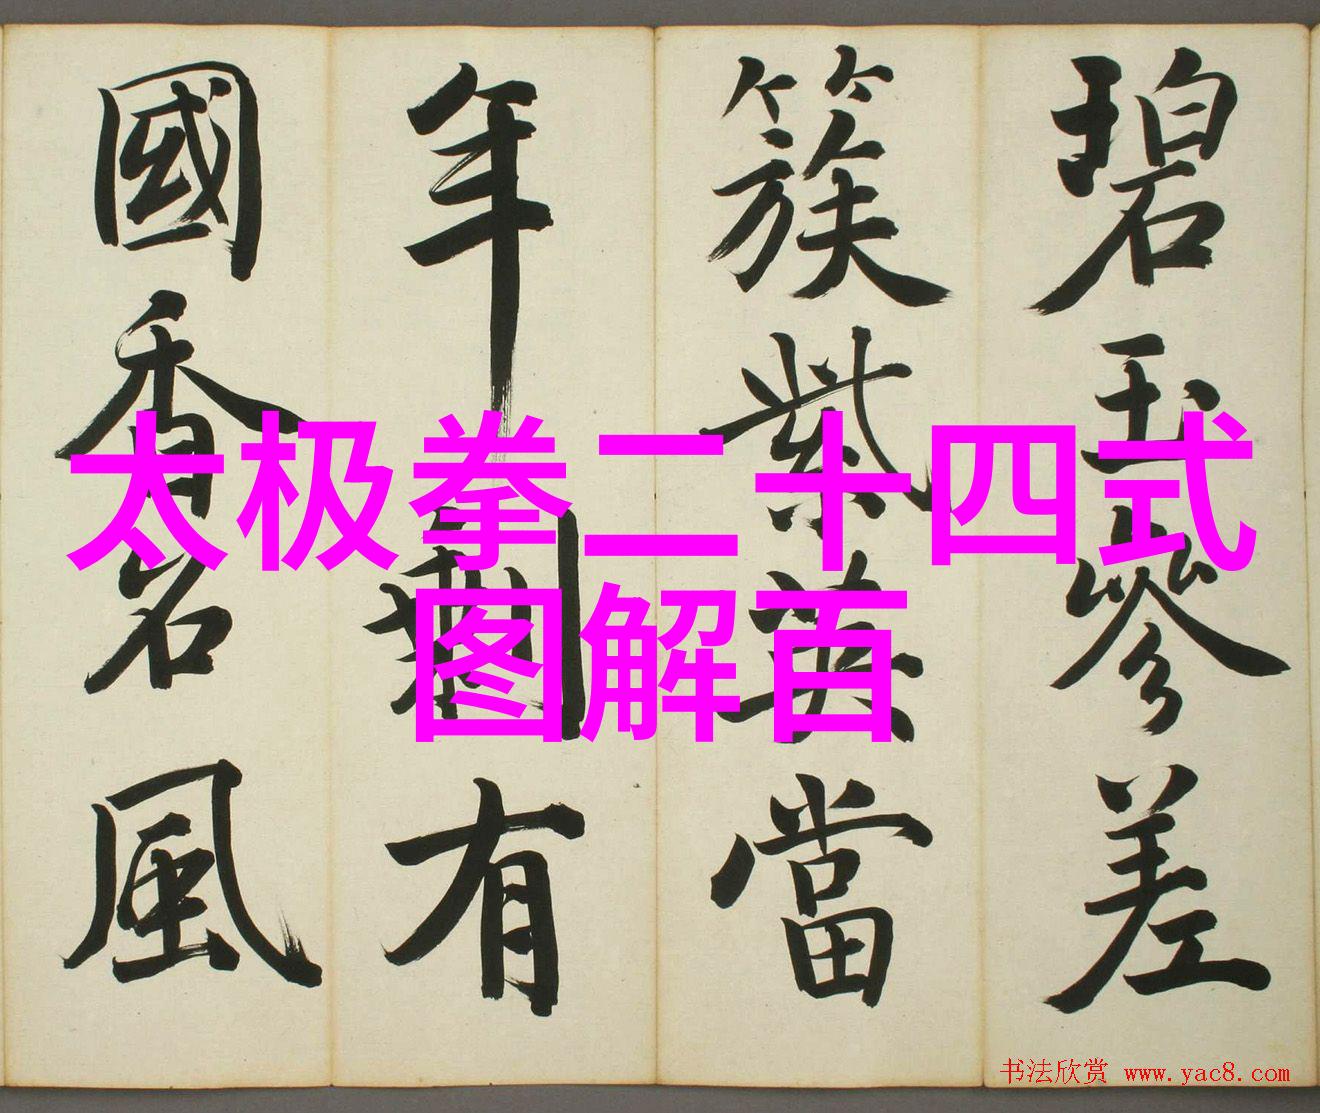 碧玉參差
簇紫英當
年剩有
國香名風
太极拳二十四式
图解百
书法欣赏 www.yac8.com